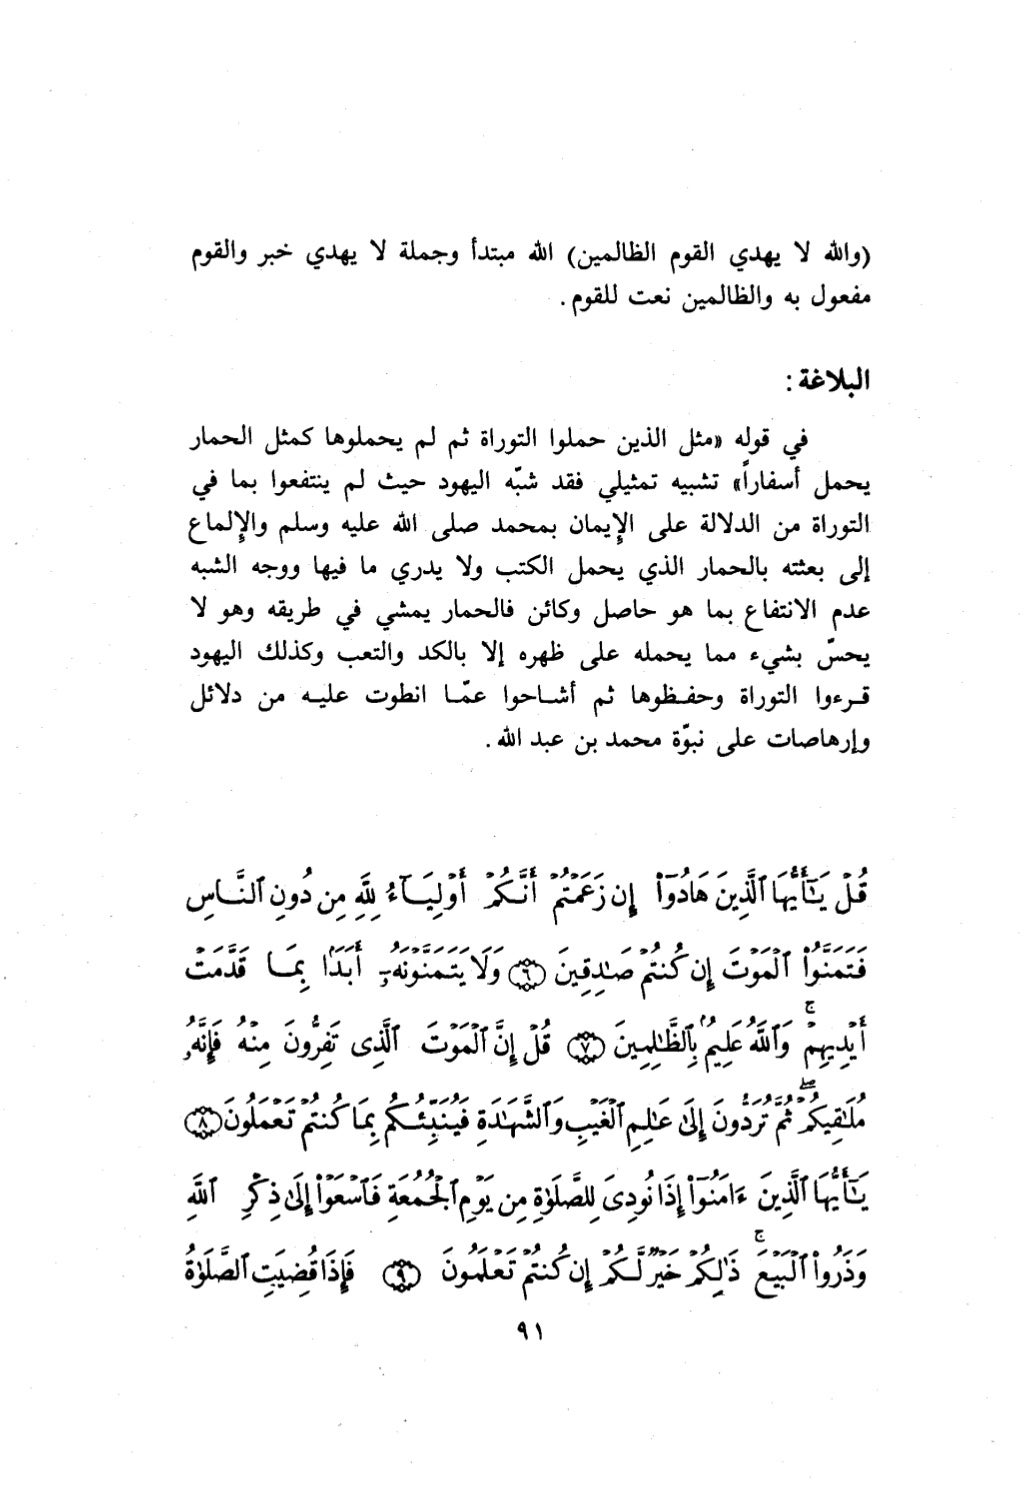 (والله لا يهدي القوم الظالمين) الله مبتدأ وجملة لا يهدي خبر والقوم
مفعول به والظالمين نعت للقوم .
البلاغة :
في قوله «مثل الذين حملوا التوراة ثم لم يحملوها كمثل الحمار
يحمل أسفاراً» تشبيه تمثيلي فقد شبّه اليهود حيث لم ينتفعوا بما في
التوراة من الدلالة على الإيمان بمحمد صلى الله عليه وسلم والإلماع
إلى بعثته بالحمار الذي يحمل الكتب ولا يدري ما فيها ووجه الشبه
عدم الانتفاع بما هو حاصل وكائن فالحمار يمشي في طريقه وهو لا
يحسّ بشيء مما يحمله على ظهره إلا بالكد والتعب وكذلك اليهود
قرءوا التوراة وحفظوها ثم أشاحوا عمّا انطوت عليه من دلائل
وإرهاصات على نبوّة محمد بن عبد الله .
قُلْ يَـٰٓأَيُّهَا ٱلَّذِينَ هَادُوٓا۟ إِن زَعَمْتُمْ أَنَّكُمْ أَوْلِيَآءُ لِلَّهِ مِن دُونِ ٱلنَّاسِ
فَتَمَنَّوُا۟ ٱلْمَوْتَ إِن كُنتُمْ صَـٰدِقِينَ ﴿٦﴾ وَلَا يَتَمَنَّوْنَهُۥٓ أَبَدَۢا بِمَا قَدَّمَتْ
أَيْدِيهِمْ ۚ وَٱللَّهُ عَلِيمٌۢ بِٱلظَّـٰلِمِينَ ﴿٧﴾ قُلْ إِنَّ ٱلْمَوْتَ ٱلَّذِى تَفِرُّونَ مِنْهُ فَإِنَّهُۥ
مُلَـٰقِيكُمْ ۖ ثُمَّ تُرَدُّونَ إِلَىٰ عَـٰلِمِ ٱلْغَيْبِ وَٱلشَّهَـٰدَةِ فَيُنَبِّئُكُم بِمَا كُنتُمْ تَعْمَلُونَ ﴿٨﴾
يَـٰٓأَيُّهَا ٱلَّذِينَ ءَامَنُوٓا۟ إِذَا نُودِىَ لِلصَّلَوٰةِ مِن يَوْمِ ٱلْجُمُعَةِ فَٱسْعَوْا۟ إِلَىٰ ذِكْرِ ٱللَّهِ
وَذَرُوا۟ ٱلْبَيْعَ ۚ ذَٰلِكُمْ خَيْرٌ لَّكُمْ إِن كُنتُمْ تَعْلَمُونَ ﴿٩﴾ فَإِذَا قُضِيَتِ ٱلصَّلَوٰةُ
٩١